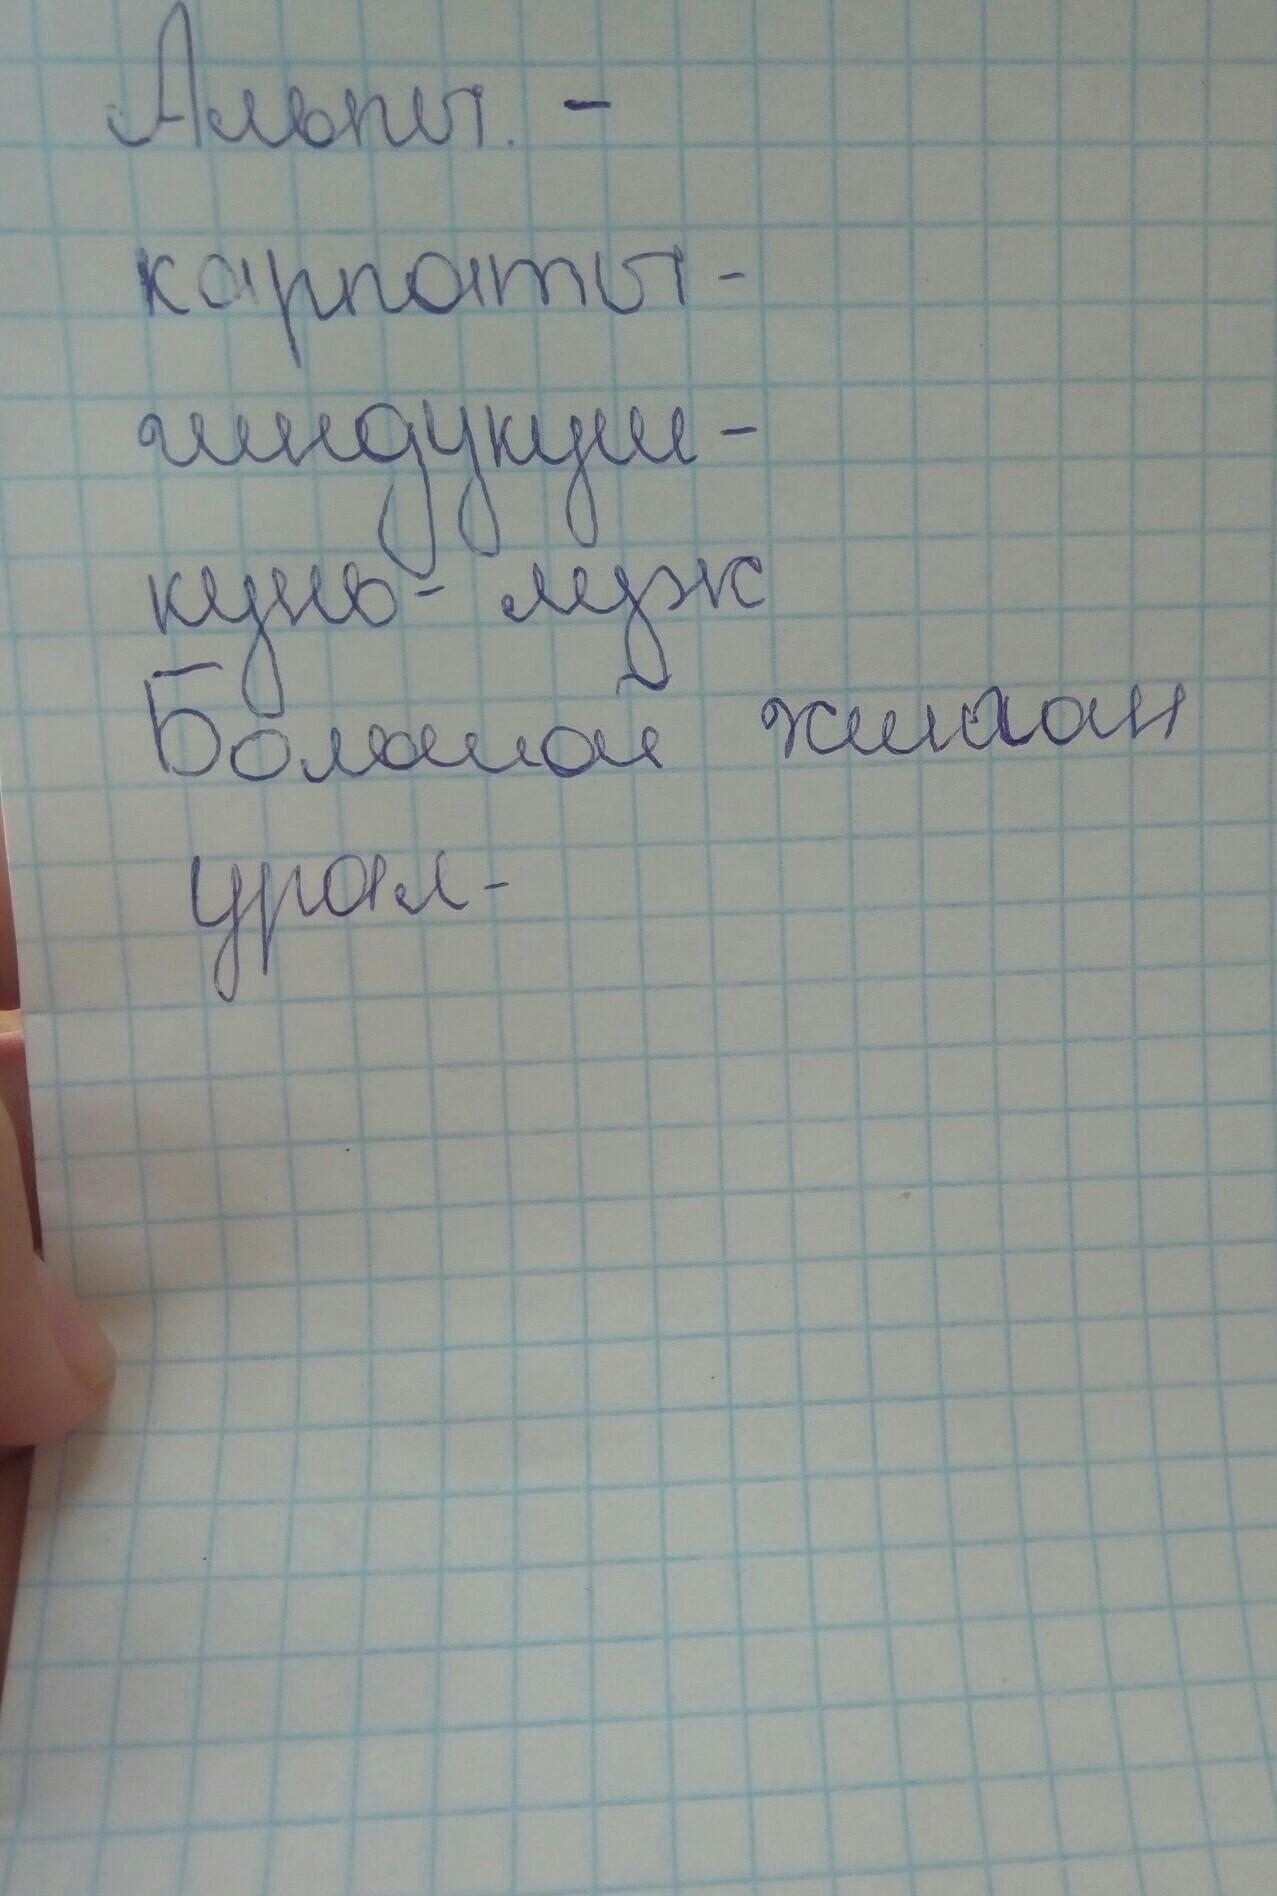 Альпы. -
карпаты -
гиндукуш -
кунь- лузк
Большой жинхан
урал -